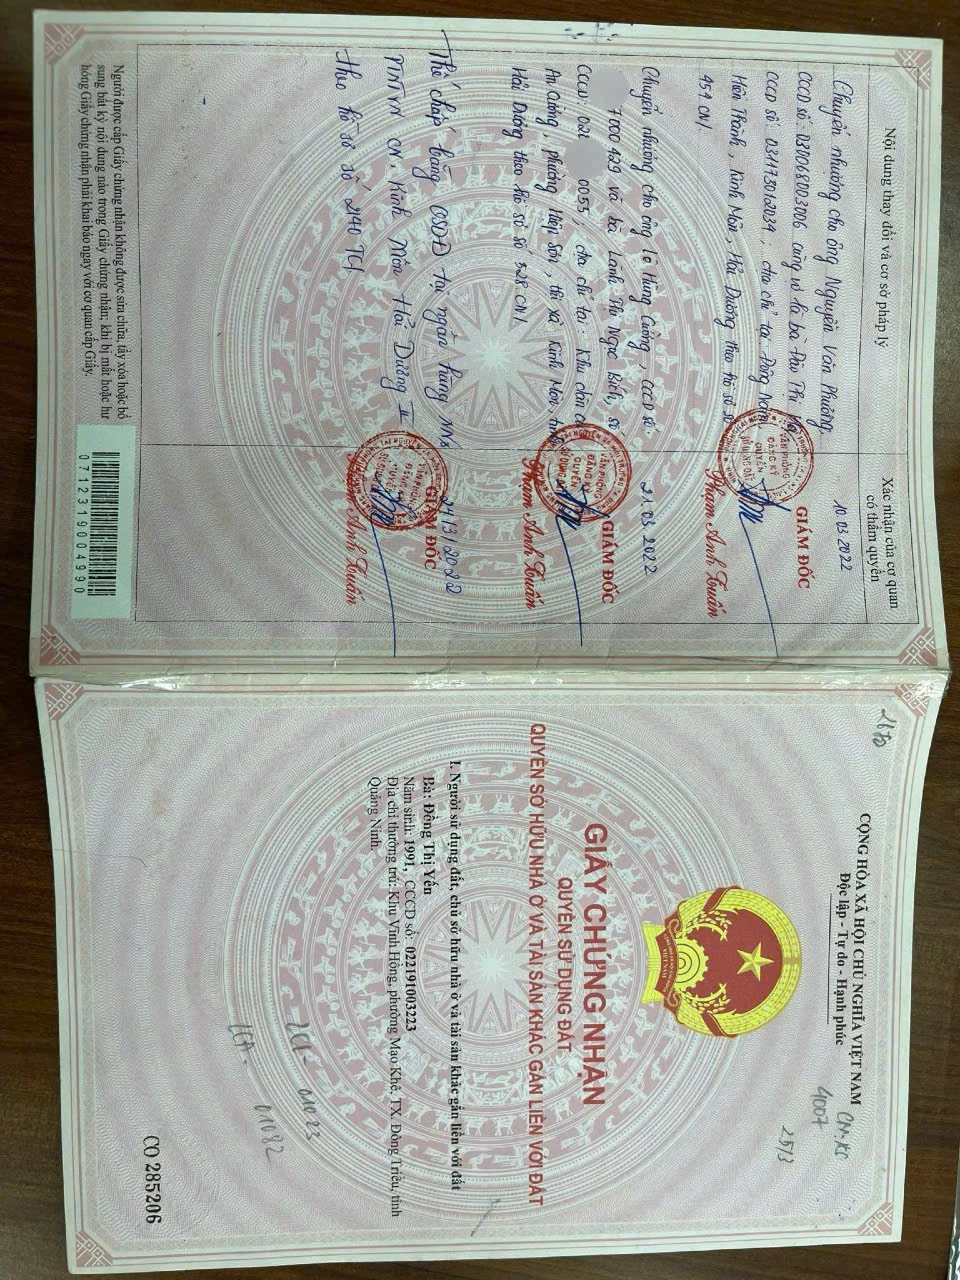 CỘNG HÒA XÃ HỘI CHỦ NGHĨA VIỆT NAM
Độc lập - Tự do - Hạnh phúc
4007
25/3
2670
GIẤY CHỨNG NHẬN
QUYỀN SỬ DỤNG ĐẤT
QUYỀN SỞ HỮU NHÀ Ở VÀ TÀI SẢN KHÁC GẮN LIỀN VỚI ĐẤT
I. Người sử dụng đất, chủ sở hữu nhà ở và tài sản khác gắn liền với đất
Bà: Đồng Thị Yến
Năm sinh: 1991, CCCD số: 022191003223
Địa chỉ thường trú: Khu Vĩnh Hồng, phường Mạo Khê, TX. Đông Triều, tỉnh
Quảng Ninh.
01082
CO 285206
Nội dung thay đổi và cơ sở pháp lý
Xác nhận của cơ quan
có thẩm quyền
Chuyển nhượng cho ông Nguyễn Văn Phường
CCCD số: 031068003006 cùng vợ là bà Đào Thị
CCCD số: 031173012034, địa chỉ tại Đồng Nam
Hiến Thành, Kinh Môn, Hải Dương theo hồ sơ số
451 CN1
10.03.2022
GIÁM ĐỐC
Phạm Anh Tuấn
Chuyển nhượng cho ông Lê Hùng Cường, CCCD số:
7000 429 và bà Lanh Thị Ngọc Bích, số
CCCD: 0055, địa chỉ tại: Khu dân cư
An Cường, phường Hiệp Sơn, thị xã Kinh Môn, tỉnh
Hải Dương theo hồ sơ số 528 CN1
21.03.2022
GIÁM ĐỐC
Phạm Anh Tuấn
Thế chấp bằng QSDĐ tại ngân hàng NNo
PTNT VN CN Kinh Môn Hải Dương II
theo hồ sơ số 2140 TC1
24/3/2022
GIÁM ĐỐC
Phạm Anh Tuấn
Người được cấp Giấy chứng nhận không được sửa chữa, tẩy xóa hoặc bổ
sung bất kỳ nội dung nào trong Giấy chứng nhận; khi bị mất hoặc hư
hỏng Giấy chứng nhận phải khai báo ngay với cơ quan cấp Giấy.
071231900499 0